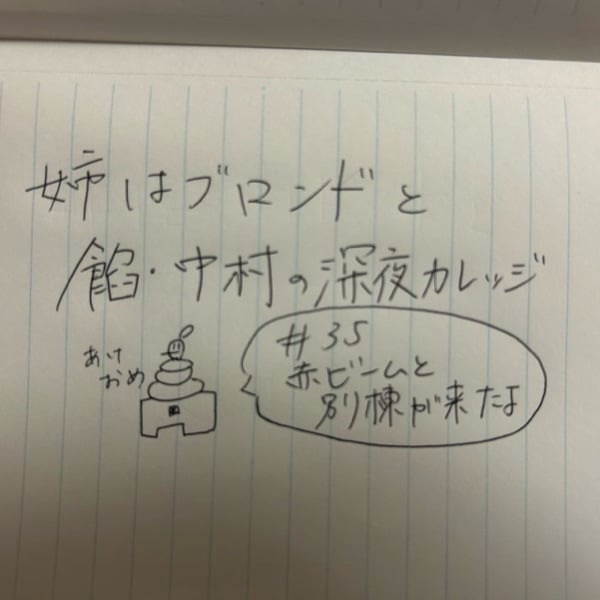 姉はブロンドと
餡・中村の深夜カレッジ
あけ
おめ
#35
赤ビームと
別棟が来たよ